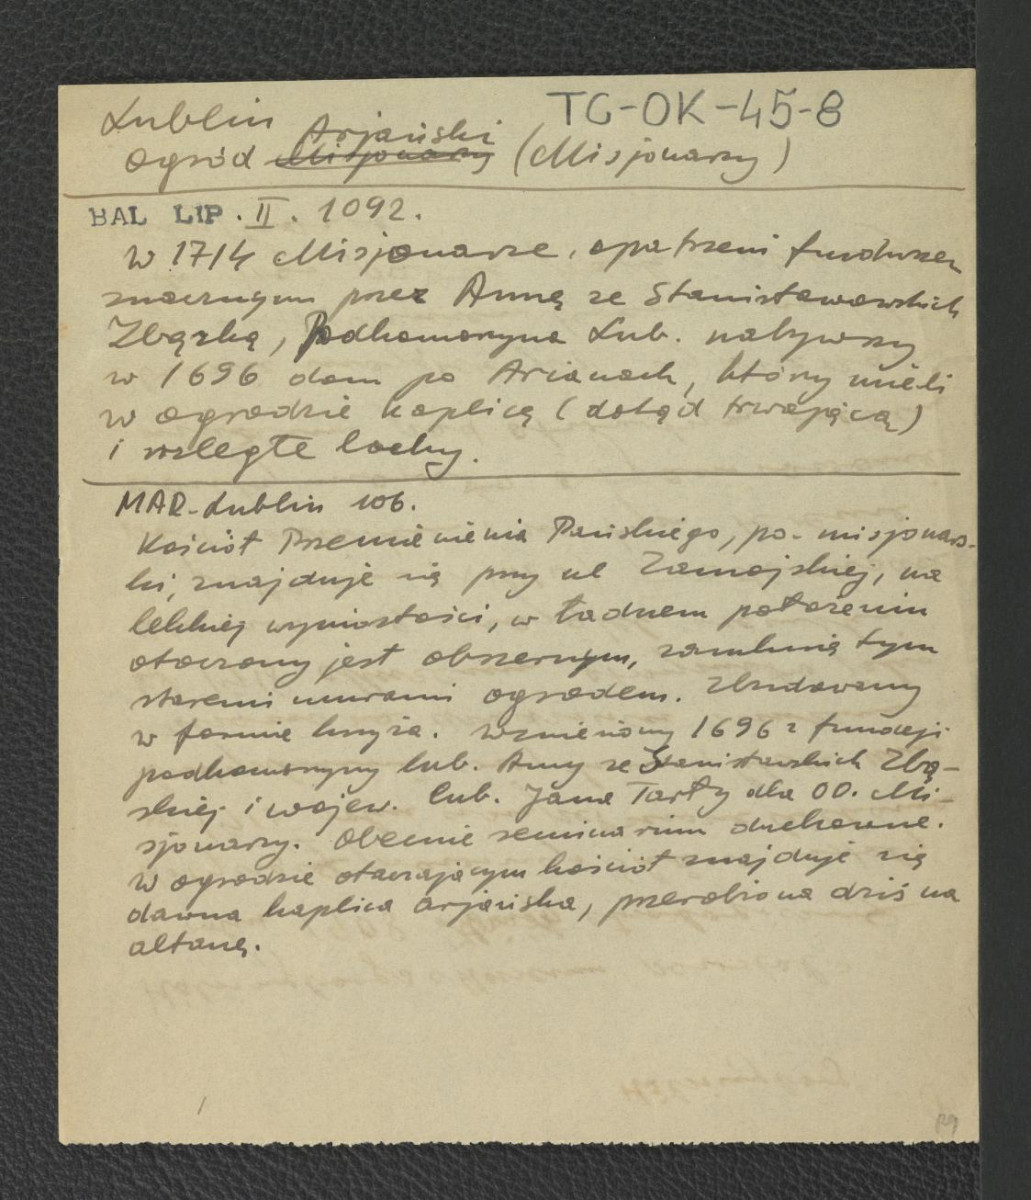 TG-OK-45-8
Lublin
Arjański
ogród Misjonarzy (Misjonarzy)
BAL LIP. II. 1092.
W 1714 Misjonarze, opatrzeni funduszem
znacznym przez Annę ze Stanisławowskich
Zbąską, Podkomorzyna Lub. nabywszy
w 1696 dom po Arianach, którzy mieli
w ogrodzie kaplicę (dotąd trwającą)
i rozległe lochy.
MAR-Lublin 106.
Kościół Przemienienia Pańskiego, po-misjonars-
ki, znajduje się przy ul Zamojskiej, na
lekkiej wyniosłości, w ładnem położeniu
otoczony jest obszernym, zamknię tym
staremi murami ogrodem. Zbudowany
w formie krzyża. Wzniesiony 1696 z fundacji
podkomorzyny lub. Anny ze Stanisławskich Zbą-
skiej i wojew. lub. Jana Tarły dla OO. Mi-
sjonarzy. Obecnie seminarium duchowne.
W ogrodzie otaczającym kościół znajduje się
dawna kaplica arjańska, przerobiona dziś na
altanę.